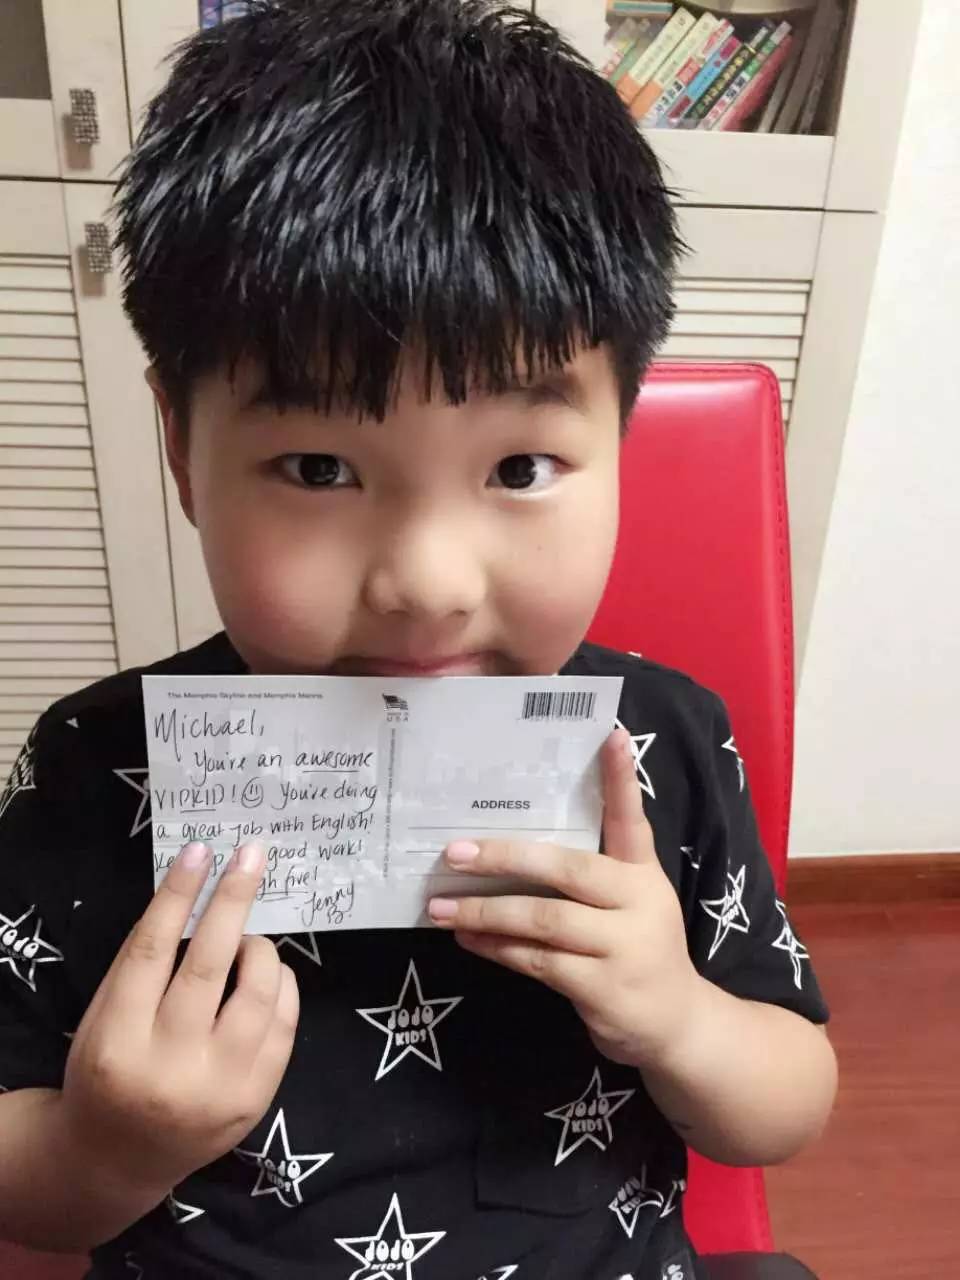 The Memphis Skyline and Memphis Manns
Michael,
You're an awesome
VIPKID! You're doing
a great job with English!
good work!
five!
-Jenny
B.
USA
ADDRESS
JOJO
KIDS
JOJO
KIDS
JOJO
KIDS
JOJO
KIDS
JOJO
JOJO